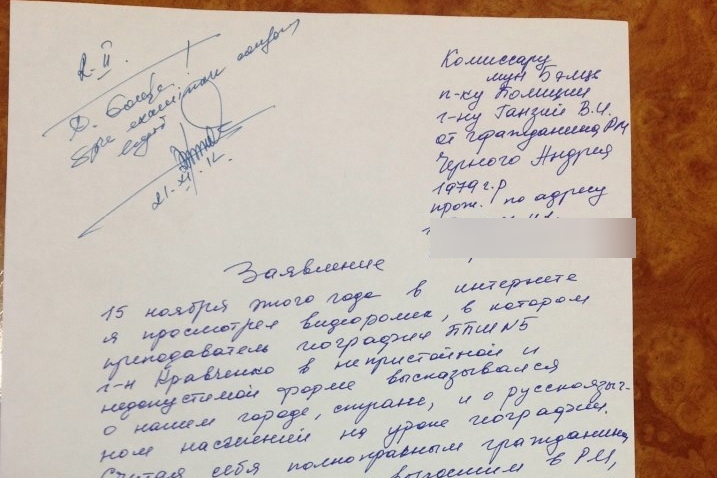 R-II.
D.
Spre examinare conform
legii
21.XI.12.
Комиссару
мун Бэлць
п-ку Полиции
г-ну Ганзий В.И.
от гражданина РМ
Черного Андрея
1979 г.р
прож. по адресу
Заявление
15 ноября этого года в интернете
я просмотрел видеоролик, в котором
преподаватель географии ППШ №5
г-н Кравченко в непристойной и
недопустимой форме высказывался
о нашем городе, стране, и о русскоязыч-
ном населении на уроке географии.
Считая себя полноправным гражданином
выросшим в РМ,